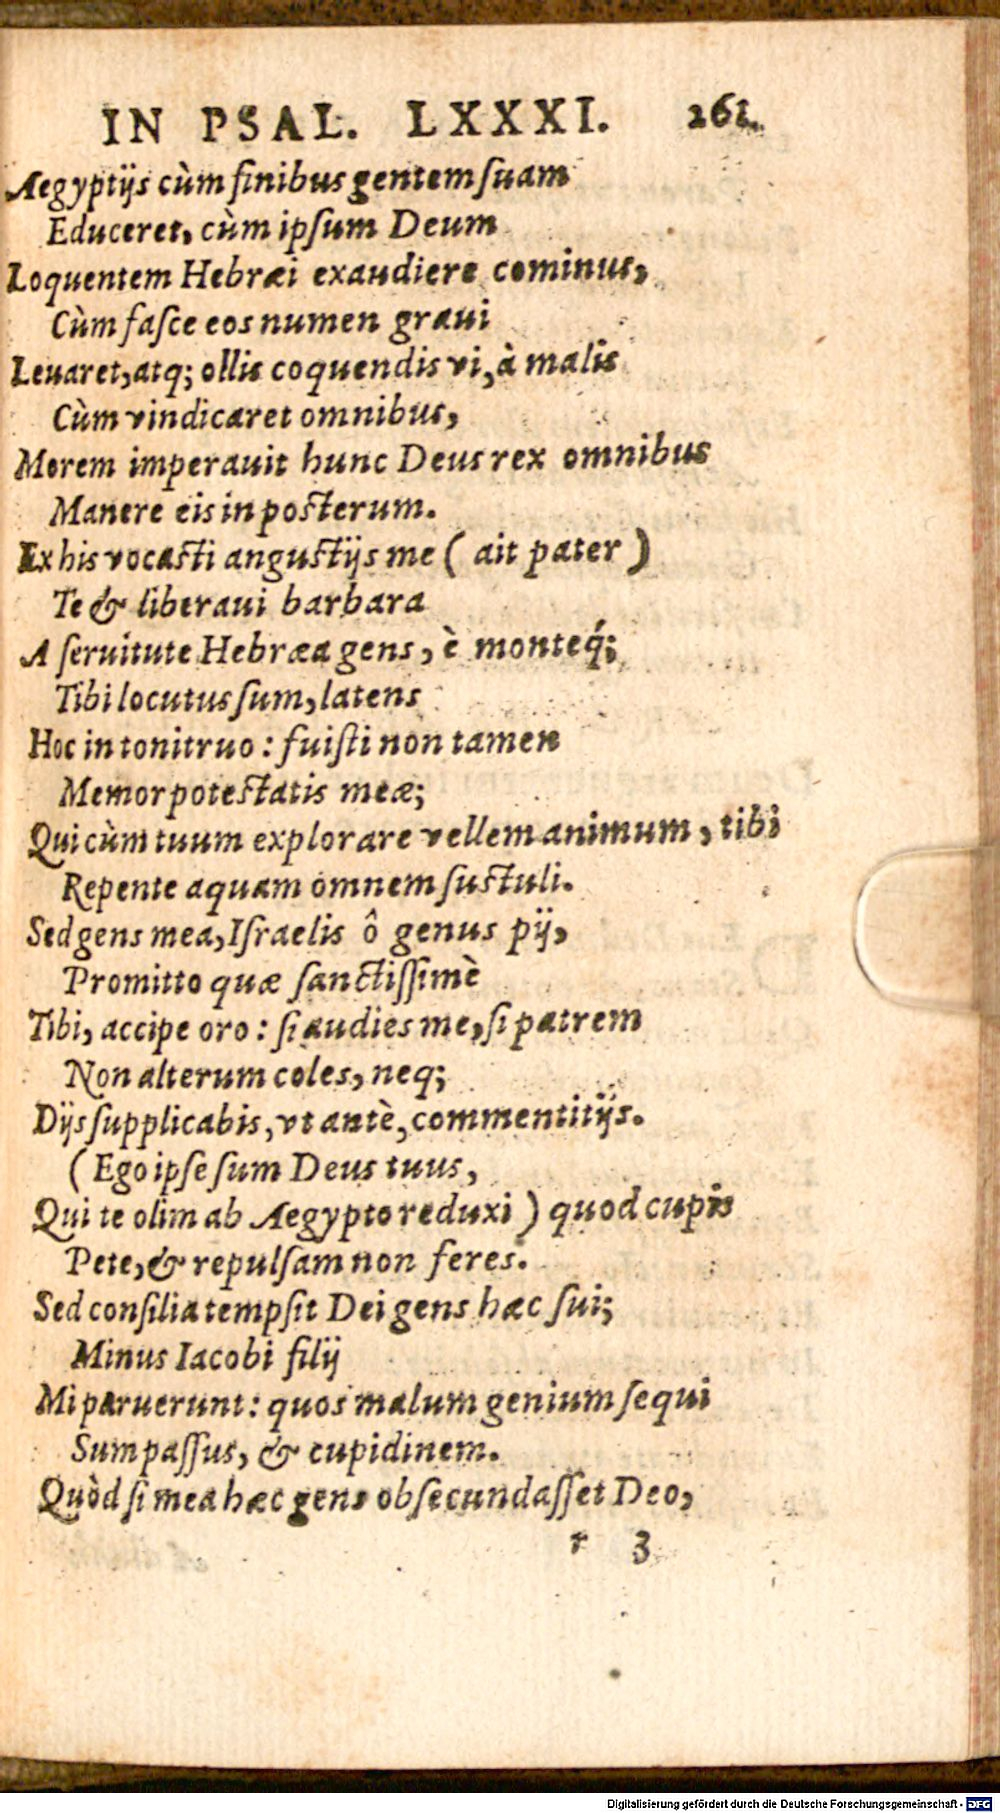 IN PSAL. LXXXI. 261.
Aegyptijs cùm finibus gentem ſuam
Educeret, cùm ipſum Deum
Loquentem Hebræi exaudiere cominus,
Cùm faſce eos numen graui
Leuaret, atq; ollis coquendis vi, à malis
Cùm vindicaret omnibus,
Morem imperauit hunc Deus rex omnibus
Manere eis in poſterum.
Ex his vocaſti anguſtijs me ( ait pater )
Te & liberaui barbara
A ſeruitute Hebræa gens, è monteq́;
Tibi locutus ſum, latens
Hoc in tonitruo : fuiſti non tamen
Memor poteſtatis meæ;
Qui cùm tuum explorare vellem animum, tibi
Repente aquam omnem ſuſtuli.
Sed gens mea, Iſraelis ô genus pij,
Promitto quæ ſanctiſſimè
Tibi, accipe oro : ſi audies me, ſi patrem
Non alterum coles, neq;
Dijs ſupplicabis, vt antè, commentitijs.
( Ego ipſe ſum Deus tuus,
Qui te olim ab Aegypto reduxi ) quod cupis
Pete, & repulſam non feres.
Sed conſilia tempſit Dei gens hæc ſui;
Minus Iacobi filij
Mi paruerunt : quos malum genium ſequi
Sum paſſus, & cupidinem.
Quòd ſi mea hæc gens obſecundaſſet Deo,
r 3
Digitalisierung gefördert durch die Deutsche Forschungsgemeinschaft - DFG